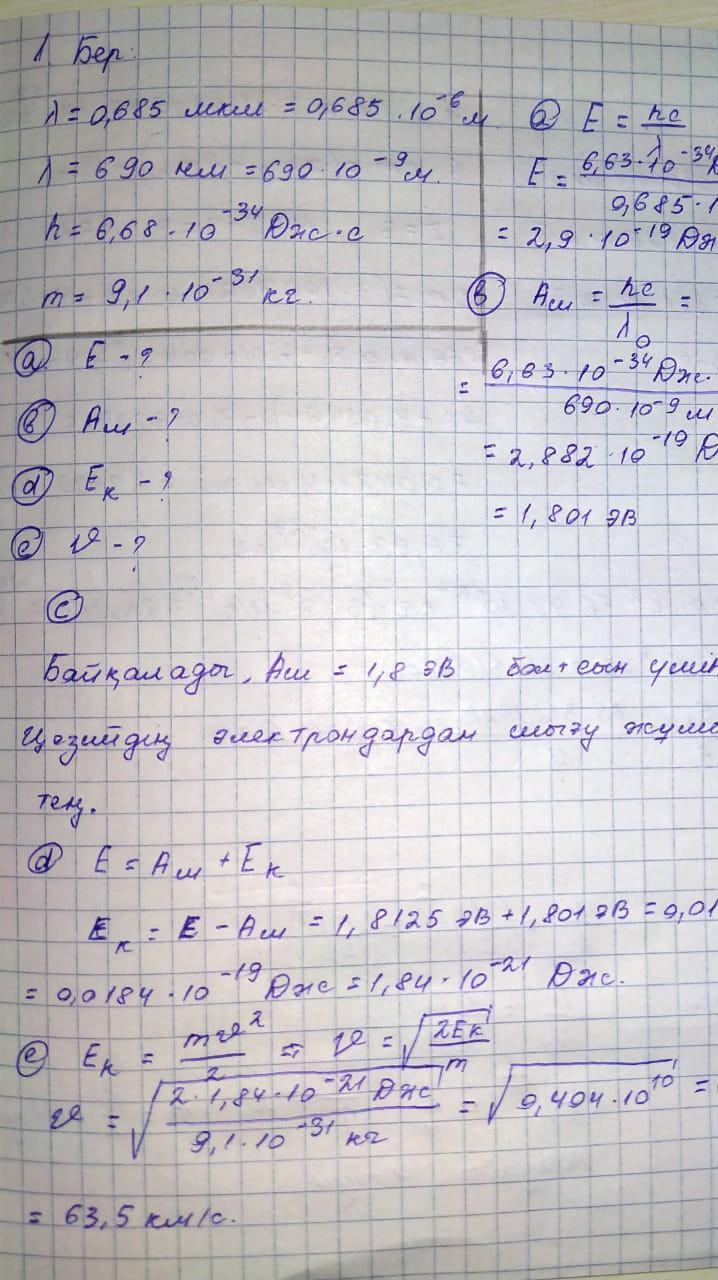 1 Бер:
λ = 0,685 мкм = 0,685 · 10⁻⁶ м.
λ = 690 нм = 690 · 10⁻⁹ м.
h = 6,68 · 10⁻³⁴ Джс · с
m = 9,1 · 10⁻³¹ кг.
a) E - ?
в) Aш - ?
d) Eк - ?
e) υ - ?
a) E = hc / λ
E = 6,63 · 10⁻³⁴ / 0,685 · 1
= 2,9 · 10⁻¹⁹ Дж
в) Aш = hc / λ₀ =
= 6,63 · 10⁻³⁴ Дж · / 690 · 10⁻⁹ м
= 2,882 · 10⁻¹⁹ Д
= 1,801 эВ
c)
Байқалады, Aш = 1,8 эВ үшін
Цезийдің электрондардан шығу жұмы
тең.
d) E = Aш + Eк
Eк = E - Aш = 1,8125 эВ + 1,801 эВ = 0,01
= 0,0184 · 10⁻¹⁹ Джс = 1,84 · 10⁻²¹ Джс.
e) Eк = mυ² / 2 = υ = √(2Eк / m)
υ = √(2 · 1,84 · 10⁻²¹ Джс / 9,1 · 10⁻³¹ кг) = √(0,404 · 10¹⁰) =
= 63,5 км/с.